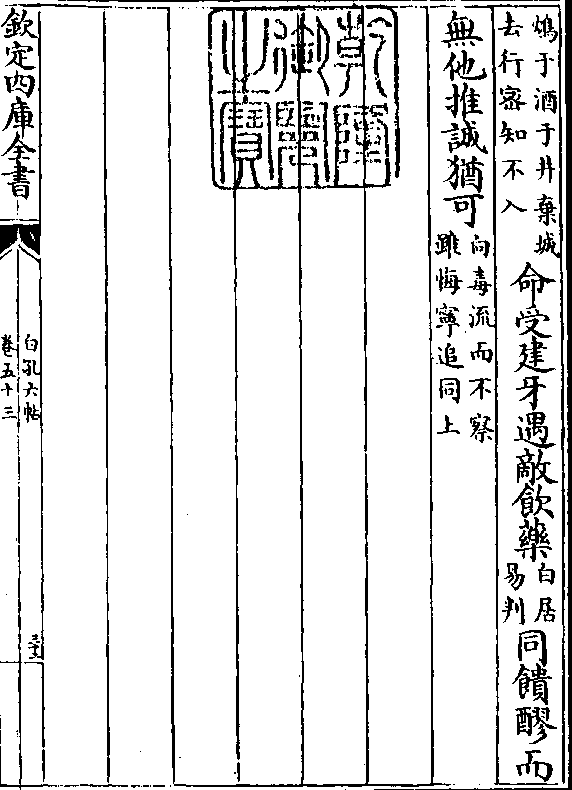 鴆于酒于井棄城
去行宻知不入
命受建牙遇敵飲藥
白居
易判
同饋醪而
無他推誠猶可
向毒流而不察
雖悔寧追同上
乾隆御覽之寶
欽定四庫全書
白孔六帖
卷五十三